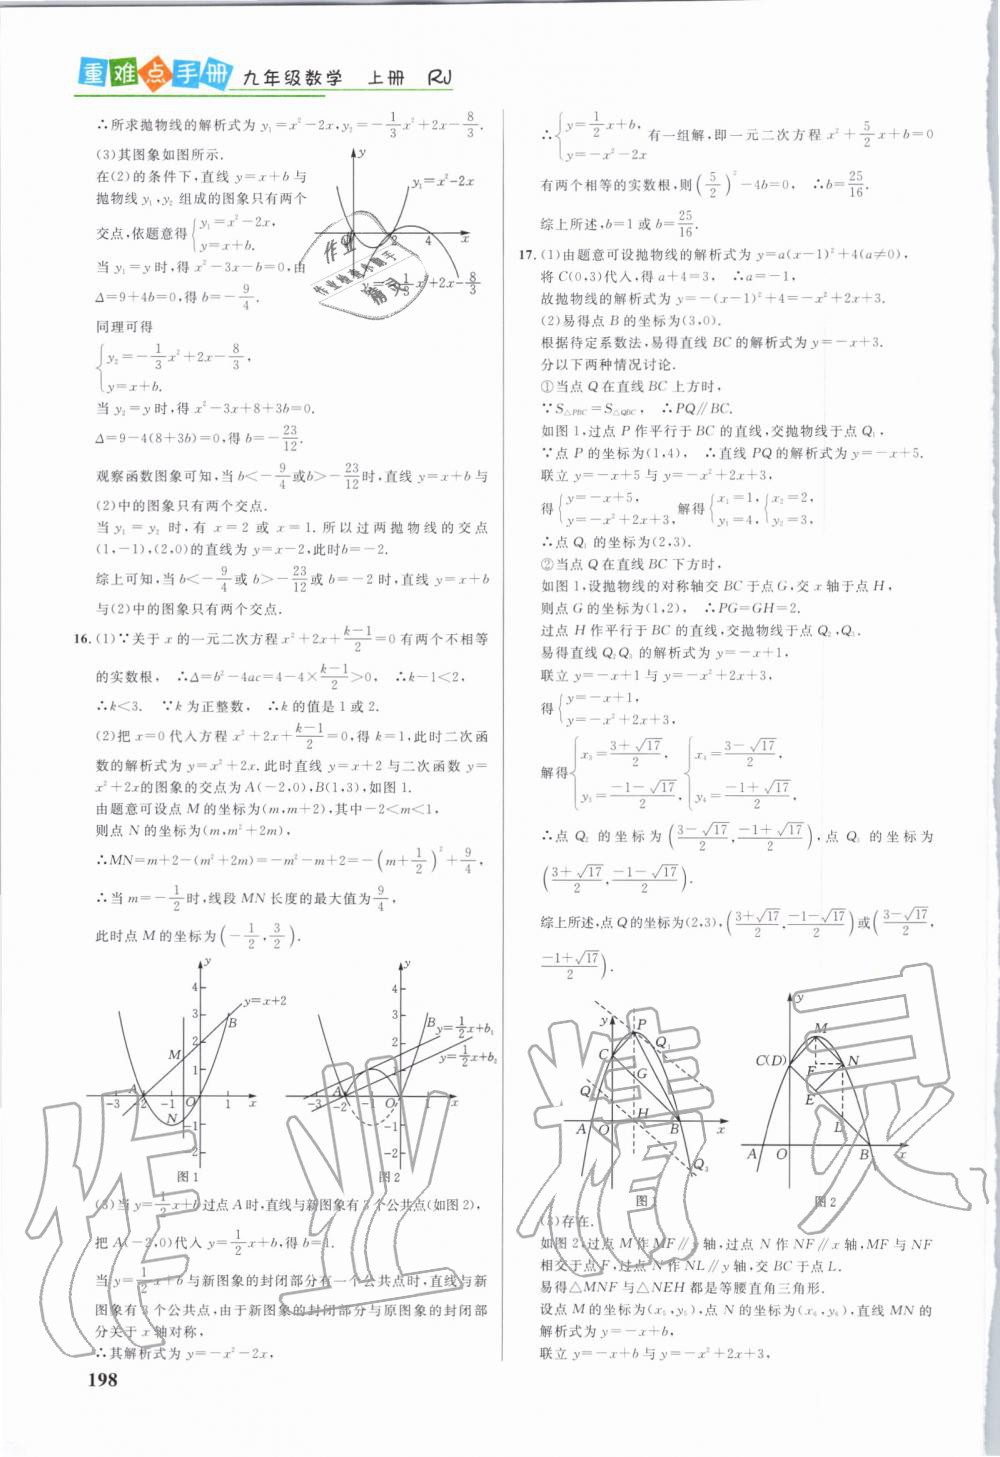 重难点手册 九年级数学 上册 RJ
∴所求抛物线的解析式为 y₁=x²-2x, y₂=-1/3x²+2x-8/3.
(3)其图象如图所示.
在(2)的条件下,直线 y=x+b 与
抛物线 y₁,y₂ 组成的图象只有两个
交点,依题意得{y₁=x²-2x, y=x+b.
当 y₁=y时,得 x²-3x-b=0,由
Δ=9+4b=0,得 b=-9/4.
同理可得
{y₂=-1/3x²+2x-8/3, y=x+b.
当 y₂=y 时,得 x²-3x+8+3b=0.
Δ=9-4(8+3b)=0,得 b=-23/12.
观察函数图象可知,当 b<-9/4或b>-23/12时,直线 y=x+b 与
(2)中的图象只有两个交点.
当 y₁=y₂ 时,有 x=2 或 x=1.所以过两抛物线的交点
(1,-1),(2,0)的直线为 y=x-2,此时b=-2.
综上可知,当 b<-9/4或 b>-23/12或 b=-2 时,直线 y=x+b
与(2)中的图象只有两个交点.
y
y₁=x²-2x
2 4 x
y₂=-1/3x²+2x-8/3
16.(1)∵关于 x 的一元二次方程 x²+2x+(k-1)/2=0 有两个不相等
的实数根, ∴Δ=b²-4ac=4-4×(k-1)/2>0, ∴k-1<2,
∴k<3. ∵k 为正整数, ∴k 的值是 1 或 2.
(2)把 x=0 代入方程 x²+2x+(k-1)/2=0,得 k=1,此时二次函
数的解析式为 y=x²+2x.此时直线 y=x+2 与二次函数 y=
x²+2x的图象的交点为 A(-2,0),B(1,3),如图 1.
由题意可设点 M 的坐标为(m,m+2),其中-2<m<1,
则点 N 的坐标为(m,m²+2m),
∴MN=m+2-(m²+2m)=-m²-m+2=-(m+1/2)²+9/4,
∴当 m=-1/2时,线段 MN 长度的最大值为9/4,
此时点 M 的坐标为(-1/2,3/2).
y 4 3 2 1 y=x+2 B M A N O -3 -2 -1 1 x -1 -2
图 1
y 4 3 2 B y=1/2x+b₁ y=1/2x+b₂ A O -3 -2 -1 1 x -1 -2
图 2
(3)当 y=1/2x+b 过点 A 时,直线与新图象有 3 个公共点(如图 2),
把 A(-2,0)代入 y=1/2x+b,得 b=1.
当 y=1/2x+b 与新图象的封闭部分有一个公共点时,直线与新
图象有 3 个公共点,由于新图象的封闭部分与原图象的封闭部
分关于 x 轴对称,
∴其解析式为 y=-x²-2x,
198
∴{y=1/2x+b, y=-x²-2x 有一组解,即一元二次方程 x²+5/2x+b=0
有两个相等的实数根,则(5/2)²-4b=0, ∴b=25/16.
综上所述,b=1 或 b=25/16.
17.(1)由题意可设抛物线的解析式为 y=a(x-1)²+4(a≠0),
将 C(0,3)代入,得 a+4=3, ∴a=-1,
故抛物线的解析式为 y=-(x-1)²+4=-x²+2x+3.
(2)易得点 B 的坐标为(3,0).
根据待定系数法,易得直线 BC 的解析式为 y=-x+3.
分以下两种情况讨论.
①当点 Q 在直线 BC 上方时,
∵S△PBC=S△QBC, ∴PQ∥BC.
如图 1,过点 P 作平行于 BC 的直线,交抛物线于点 Q₁,
∵点 P 的坐标为(1,4), ∴直线 PQ 的解析式为 y=-x+5.
联立 y=-x+5 与 y=-x²+2x+3,
得{y=-x+5, y=-x²+2x+3, 解得{x₁=1, y₁=4, {x₂=2, y₂=3,
∴点 Q₁ 的坐标为(2,3).
②当点 Q 在直线 BC 下方时,
如图 1,设抛物线的对称轴交 BC 于点 G,交 x 轴于点 H,
则点 G 的坐标为(1,2), ∴PG=GH=2.
过点 H 作平行于 BC 的直线,交抛物线于点 Q₂,Q₃.
易得直线 Q₂Q₃ 的解析式为 y=-x+1,
联立 y=-x+1 与 y=-x²+2x+3,
得{y=-x+1, y=-x²+2x+3,
解得{x₃=(3+√17)/2, y₃=(-1-√17)/2, {x₄=(3-√17)/2, y₄=(-1+√17)/2,
∴点 Q₂ 的坐标为((3-√17)/2,(-1+√17)/2),点 Q₃ 的坐标为
((3+√17)/2,(-1-√17)/2).
综上所述,点 Q的坐标为(2,3),((3+√17)/2,(-1-√17)/2)或((3-√17)/2,
(-1+√17)/2).
y P Q₁ C G Q₂ H A O B x Q₃
图 1
y M C(D) F N E L A O B x
图 2
(3)存在.
如图 2,过点 M 作 MF∥y 轴,过点 N 作 NF∥x 轴,MF 与 NF
相交于点 F,过点 N 作 NL∥y 轴,交 BC 于点 L.
易得△MNF 与△NEH 都是等腰直角三角形.
设点 M 的坐标为(x₅,y₅),点 N 的坐标为(x₆,y₆),直线 MN 的
解析式为 y=-x+b,
联立 y=-x+b 与 y=-x²+2x+3,
作业精灵